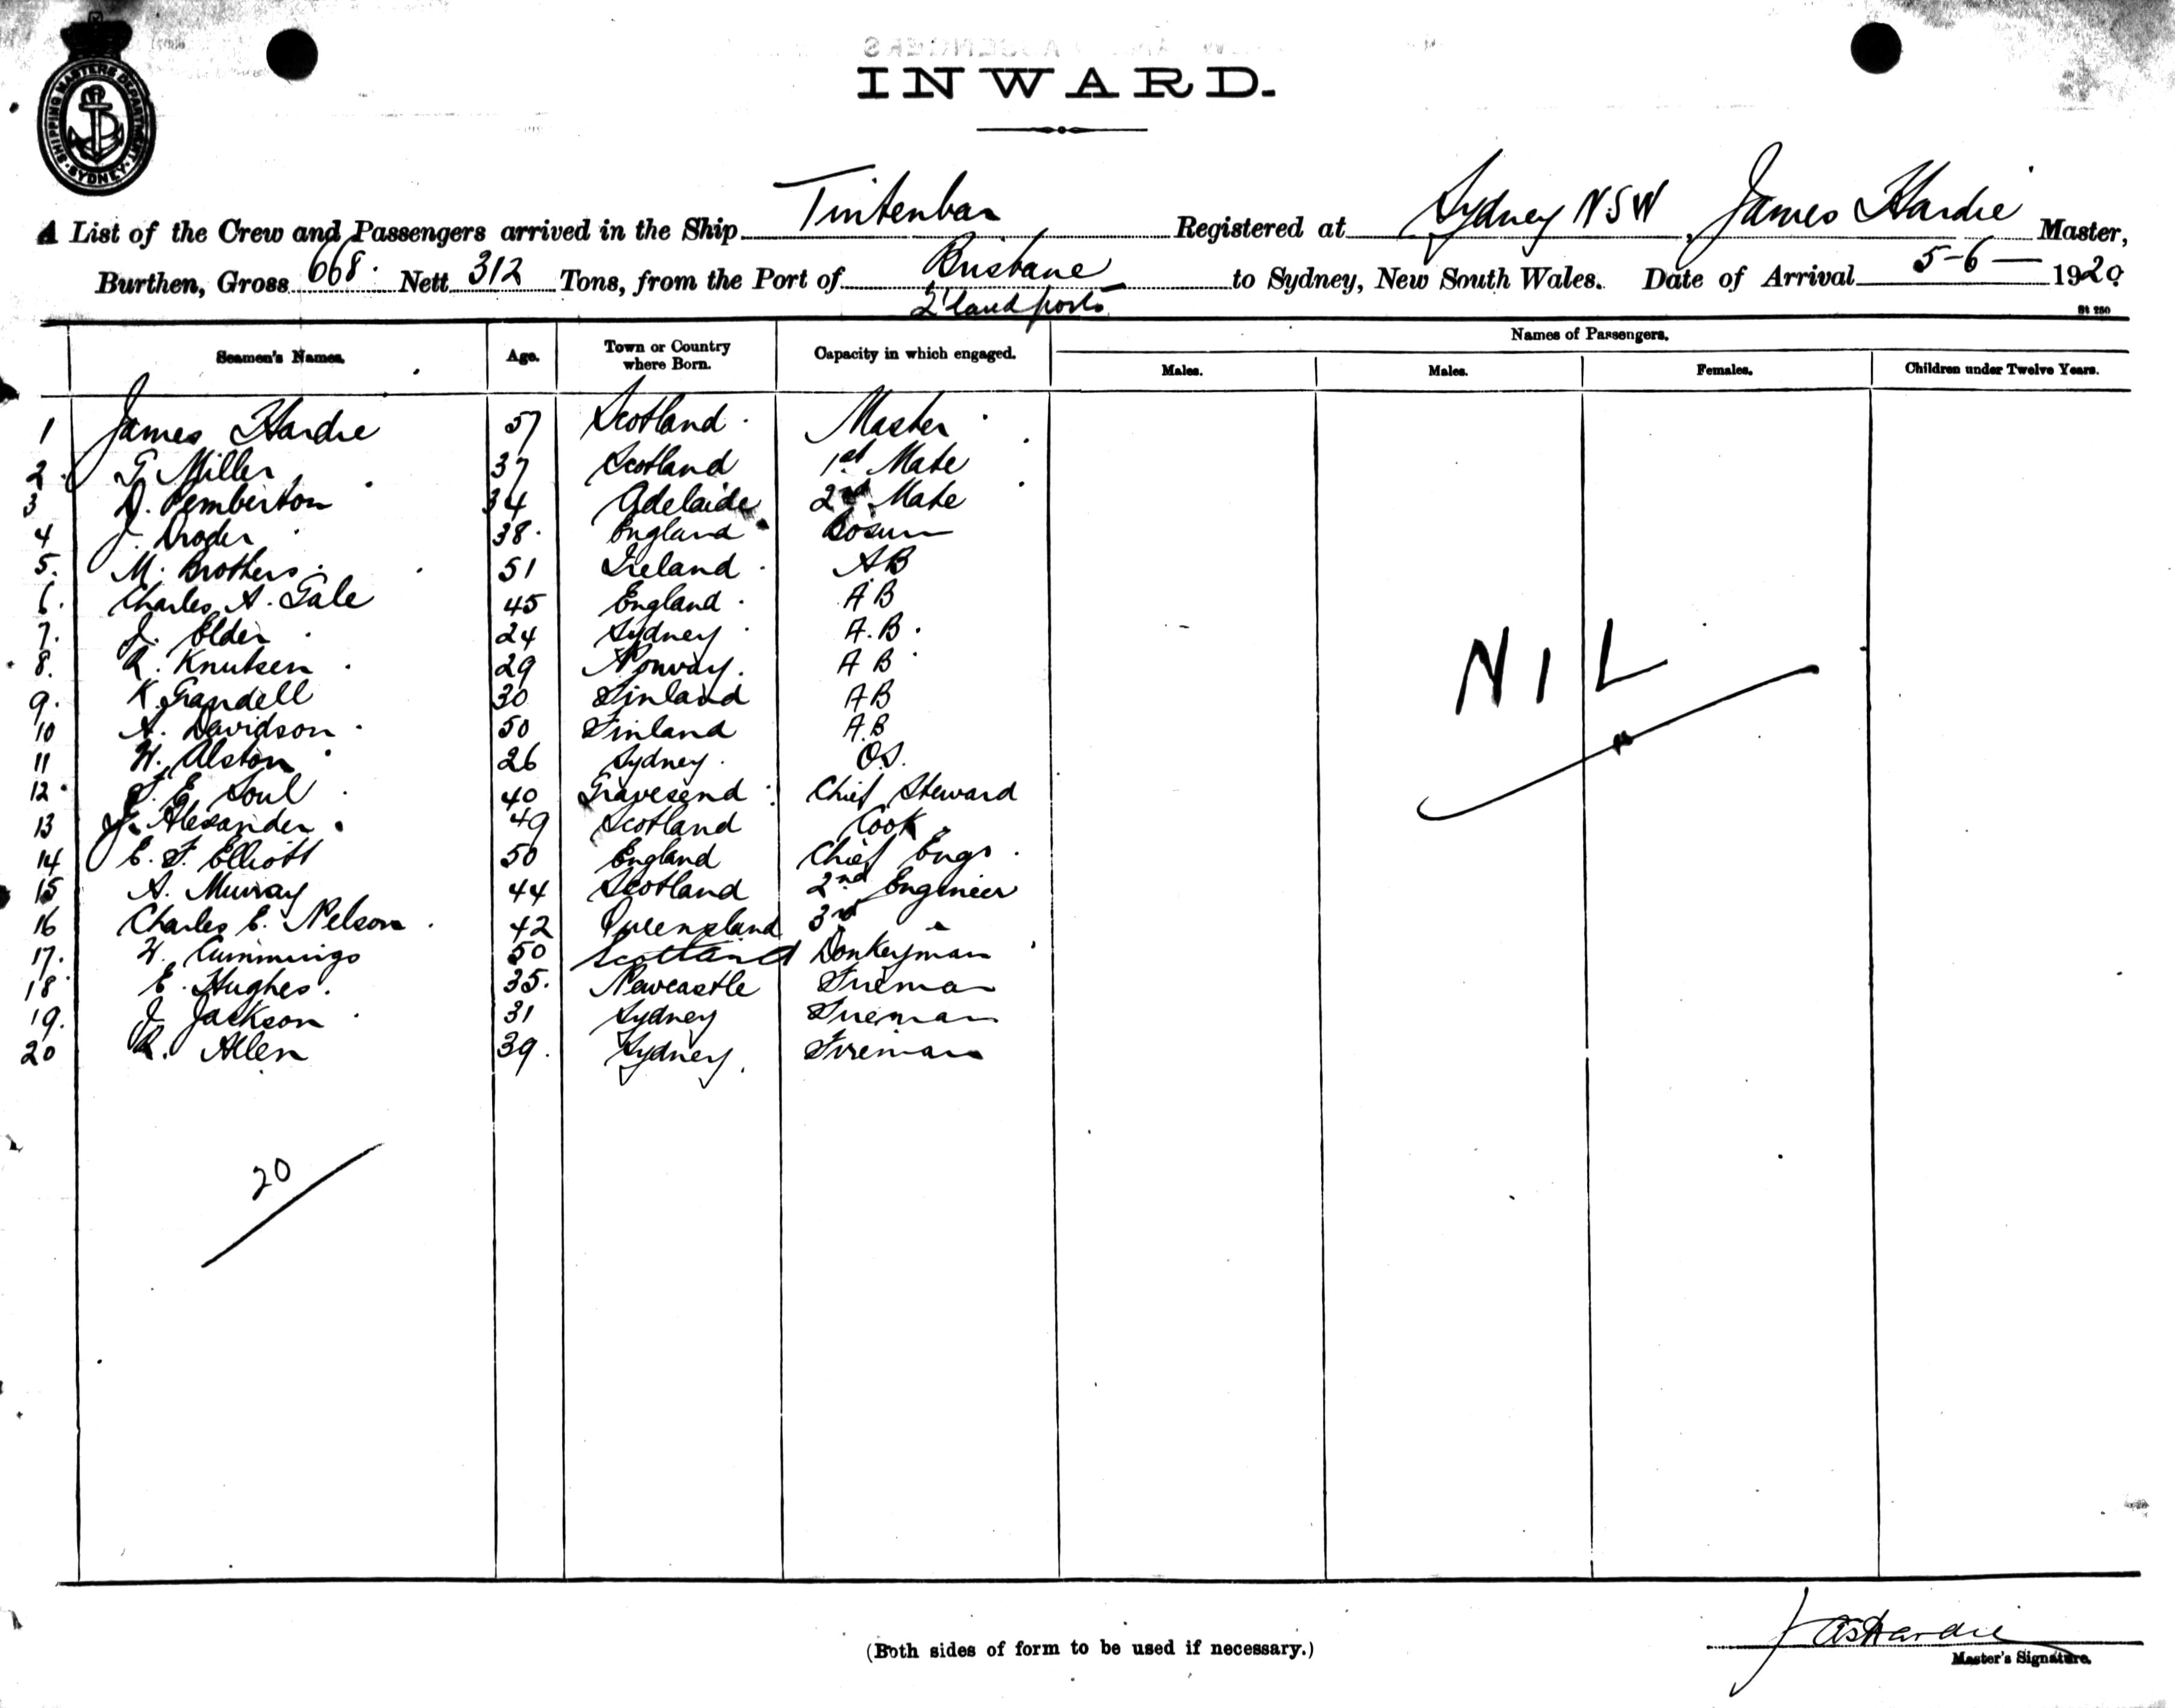 SHIPPING MASTERS DEPARTMENT
SYDNEY
INWARD.
A List of the Crew and Passengers arrived in the Ship Tintenbar Registered at Sydney NSW, James Hardie Master,
Burthen, Gross 668 Nett 312 Tons, from the Port of Brisbane to Sydney, New South Wales. Date of Arrival 5-6- 1920
Q'land ports
St 250
Seamen's Names. Age. Town or Country where Born. Capacity in which engaged. Names of Passengers.
Males. Males. Females. Children under Twelve Years.
1 James Hardie 57 Scotland Master
2 G Miller 37 Scotland 1st Mate
3 D. Pemberton 34 Adelaide 2nd Mate
4 J. 38 England Bosun
5. M. Brothers 51 Ireland AB
6. Charles A. Gale 45 England AB
7. J. Elder 24 Sydney A.B.
8. R. Knutsen 29 Norway. AB
9. K. Grandell 30 Finland AB
10 A. Davidson 50 Finland A.B
11 W. Alston 26 Sydney O.S.
12 E. Soul 40 Gravesend Chief Steward
13 J. Alexander 49 Scotland Cook
14 E. F. Elliott 50 England Chief Engr
15 A. Murray 44 Scotland 2nd Engineer
16 Charles E. Nelson 42 Queensland 3rd "
17. W. Cummings 50 Scotland Donkeyman
18 E. Hughes. 35. Newcastle Fireman
19. J. Jackson 31 Sydney Fireman
20 R. Allen 39. Sydney Fireman
NIL
20
(Both sides of form to be used if necessary.)
Jas Hardie
Master's Signature.